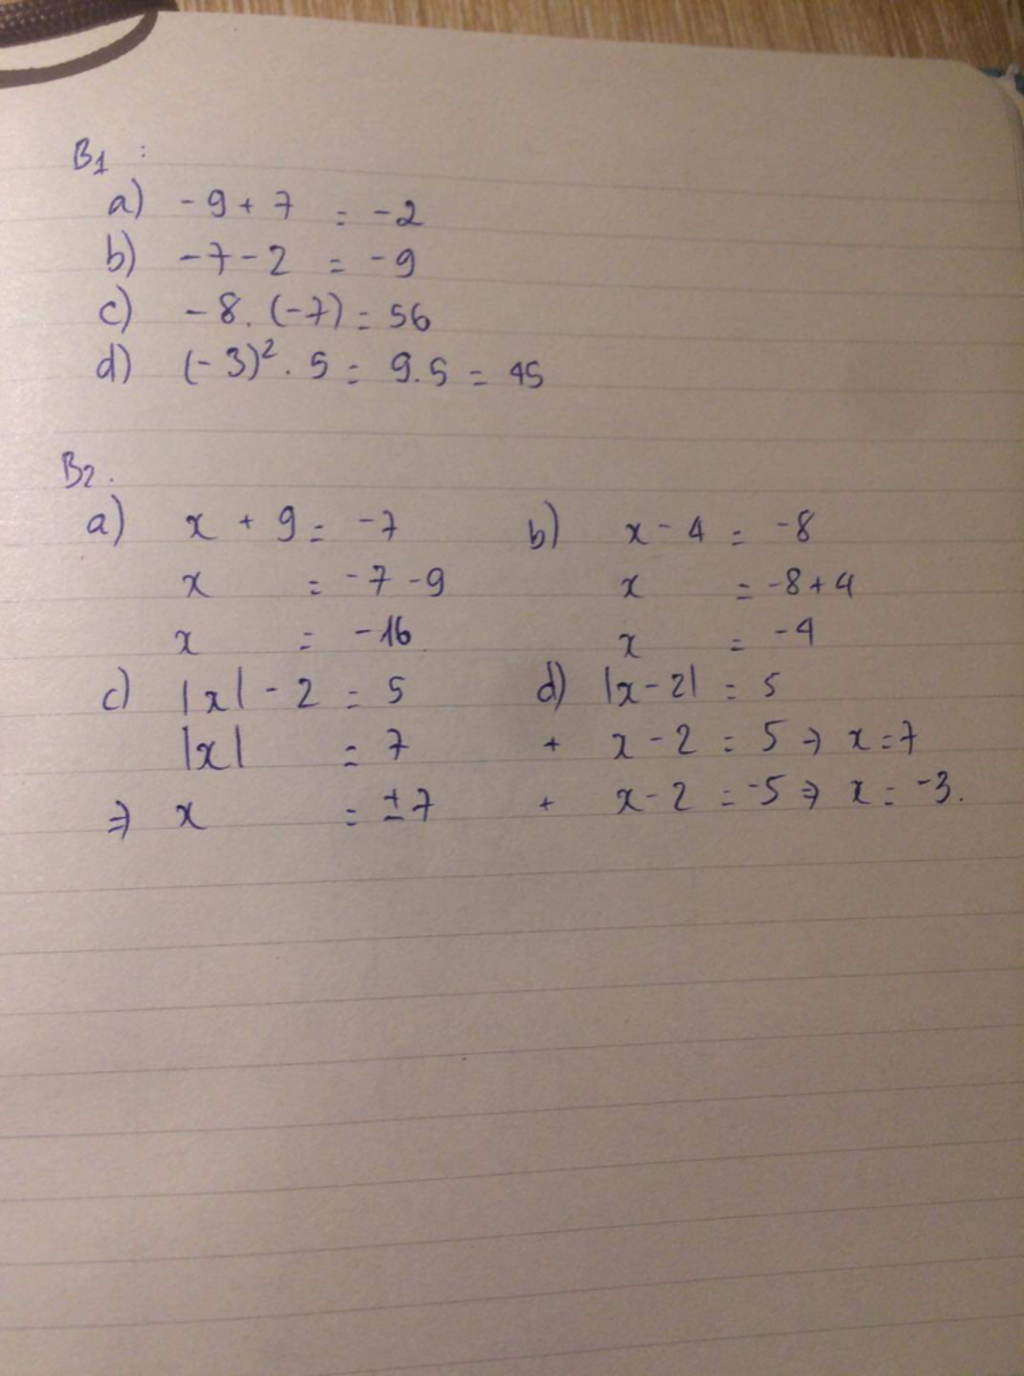 B1 :
a) -9 + 7 = -2
b) -7 - 2 = -9
c) -8 . (-7) = 56
d) (-3)² . 5 = 9.5 = 45
B2.
a) x + 9 = -7
x = -7 - 9
x = -16
b) x - 4 = -8
x = -8 + 4
x = -4
c) |x| - 2 = 5
|x| = 7
⇒ x = ±7
d) |x - 2| = 5
+ x - 2 = 5 ⇒ x = 7
+ x - 2 = -5 ⇒ x = -3.